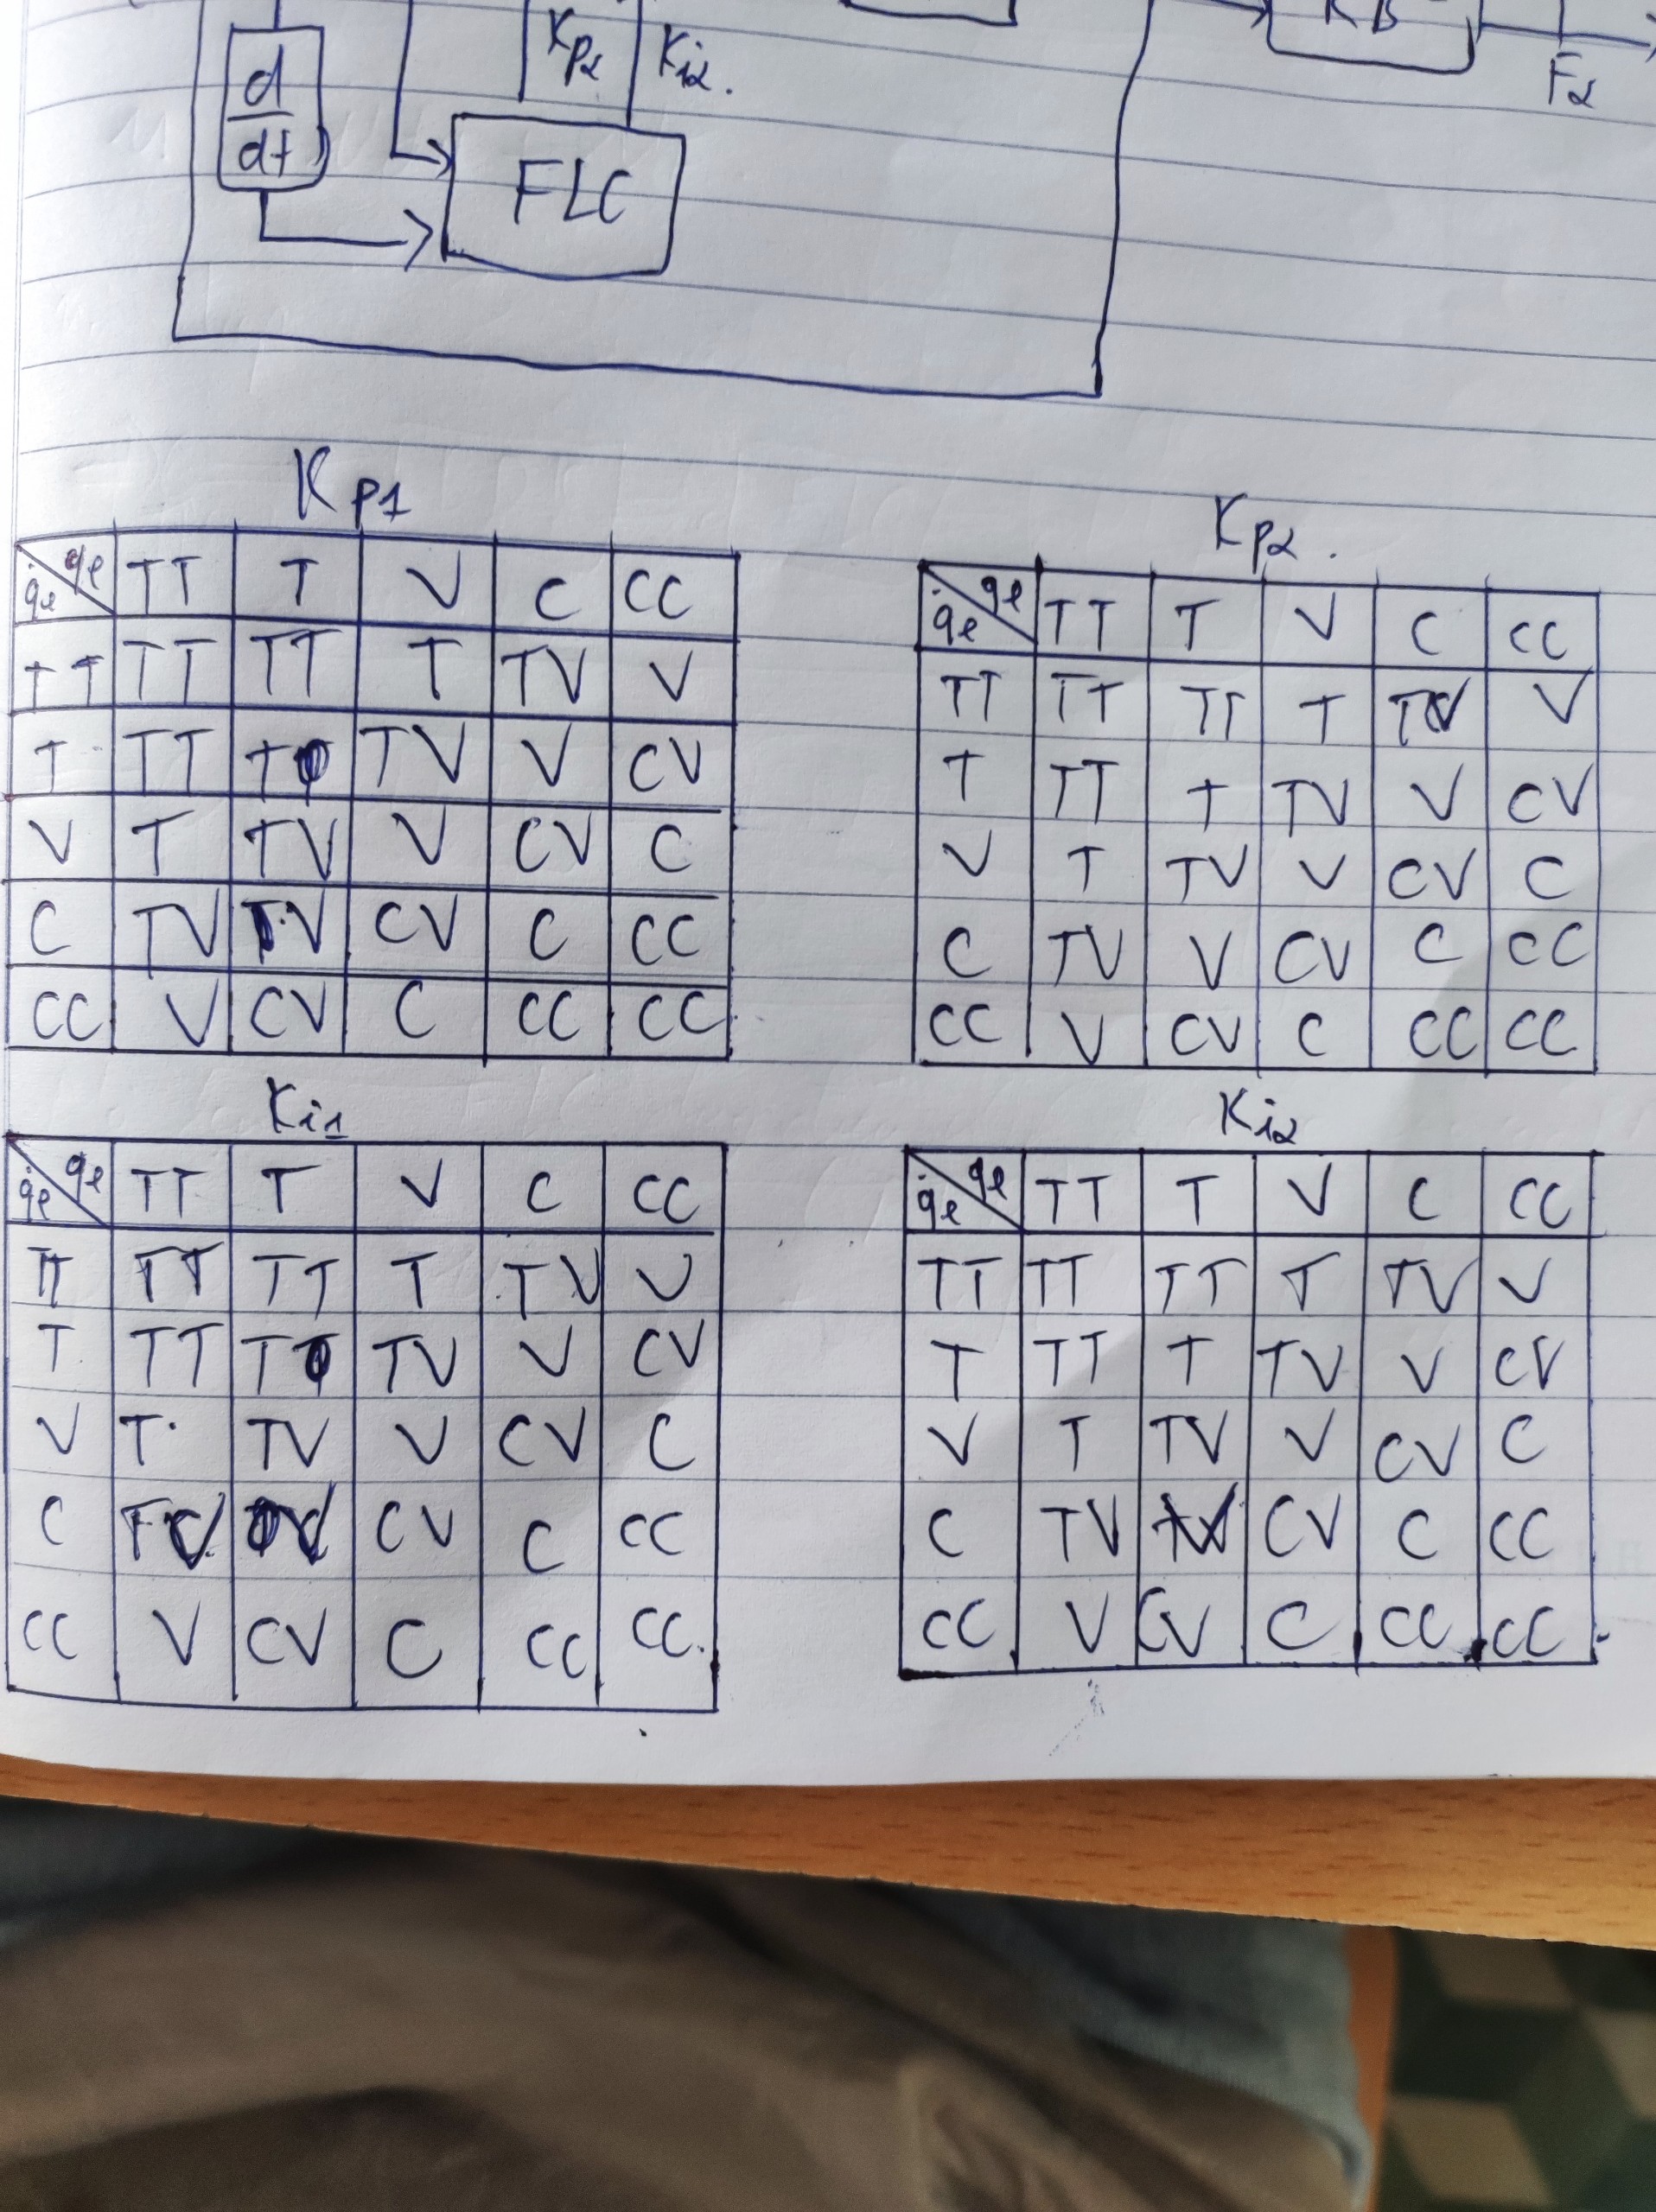 d
dt
Kp2 Ki2.
F2
FLC
Kp1
q̇e qe TT T V C CC
TT TT TT T TV V
T TT T TV V CV
V T TV V CV C
C TV V CV C CC
CC V CV C CC CC
Kp2.
q̇e qe TT T V C CC
TT TT TT T TV V
T TT T TV V CV
V T TV V CV C
C TV V CV C CC
CC V CV C CC CC
Ki1
q̇e qe TT T V C CC
TT TT TT T TV V
T TT T TV V CV
V T TV V CV C
C CV C CC
CC V CV C CC CC
Ki2
q̇e qe TT T V C CC
TT TT TT T TV V
T TT T TV V CV
V T TV V CV C
C TV CV C CC
CC V CV C CC CC